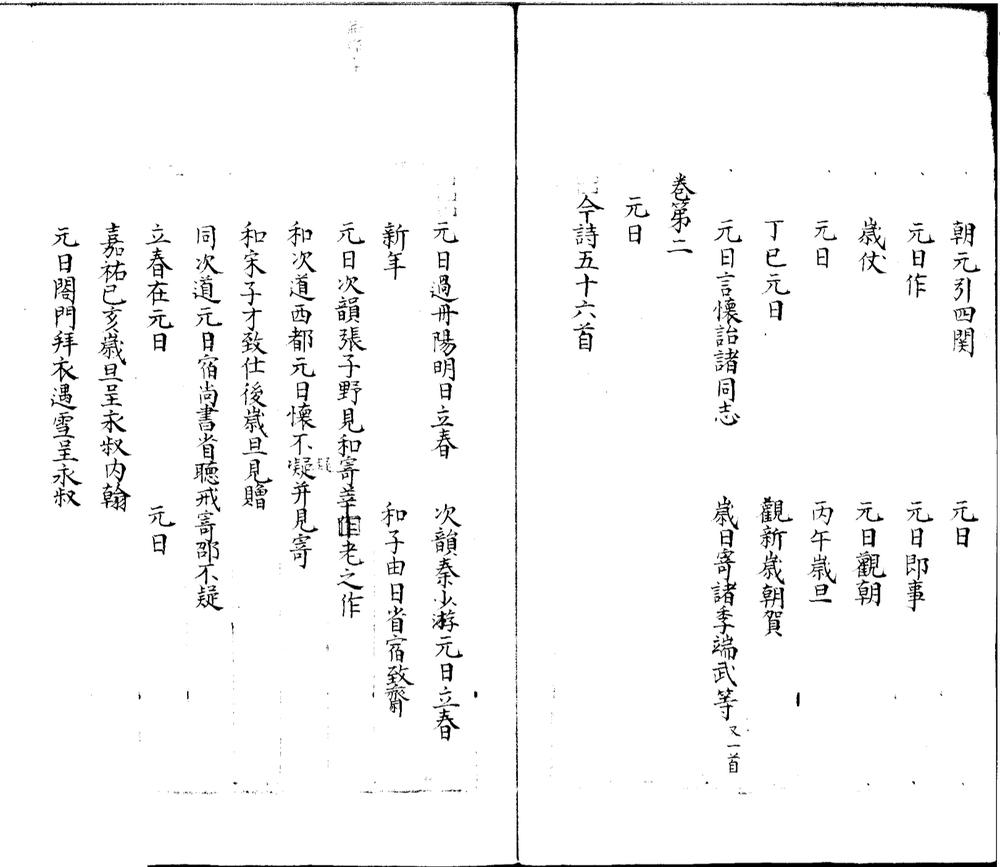 朝元引四関　元日
元日作　元日即事
歳仗　元日觀朝
元日　丙午歳旦
丁巳元日　觀新歳朝賀
元日言懷詒諸同志　歳日寄諸季端武等又一首
卷第二
元日
今詩五十六首
元日過丹陽明日立春　次韻秦少游元日立春
新年　和子由日省宿致齋
元日次韻張子野見和寄老之作
和次道西都元日懷不疑并見寄
和宋子才致仕後歳旦見贈
同次道元日宿尚書省聽戒寄邵不疑
立春在元日　元日
嘉祐己亥歳旦呈永叔内翰
元日閤門拜衣遇雪呈永叔